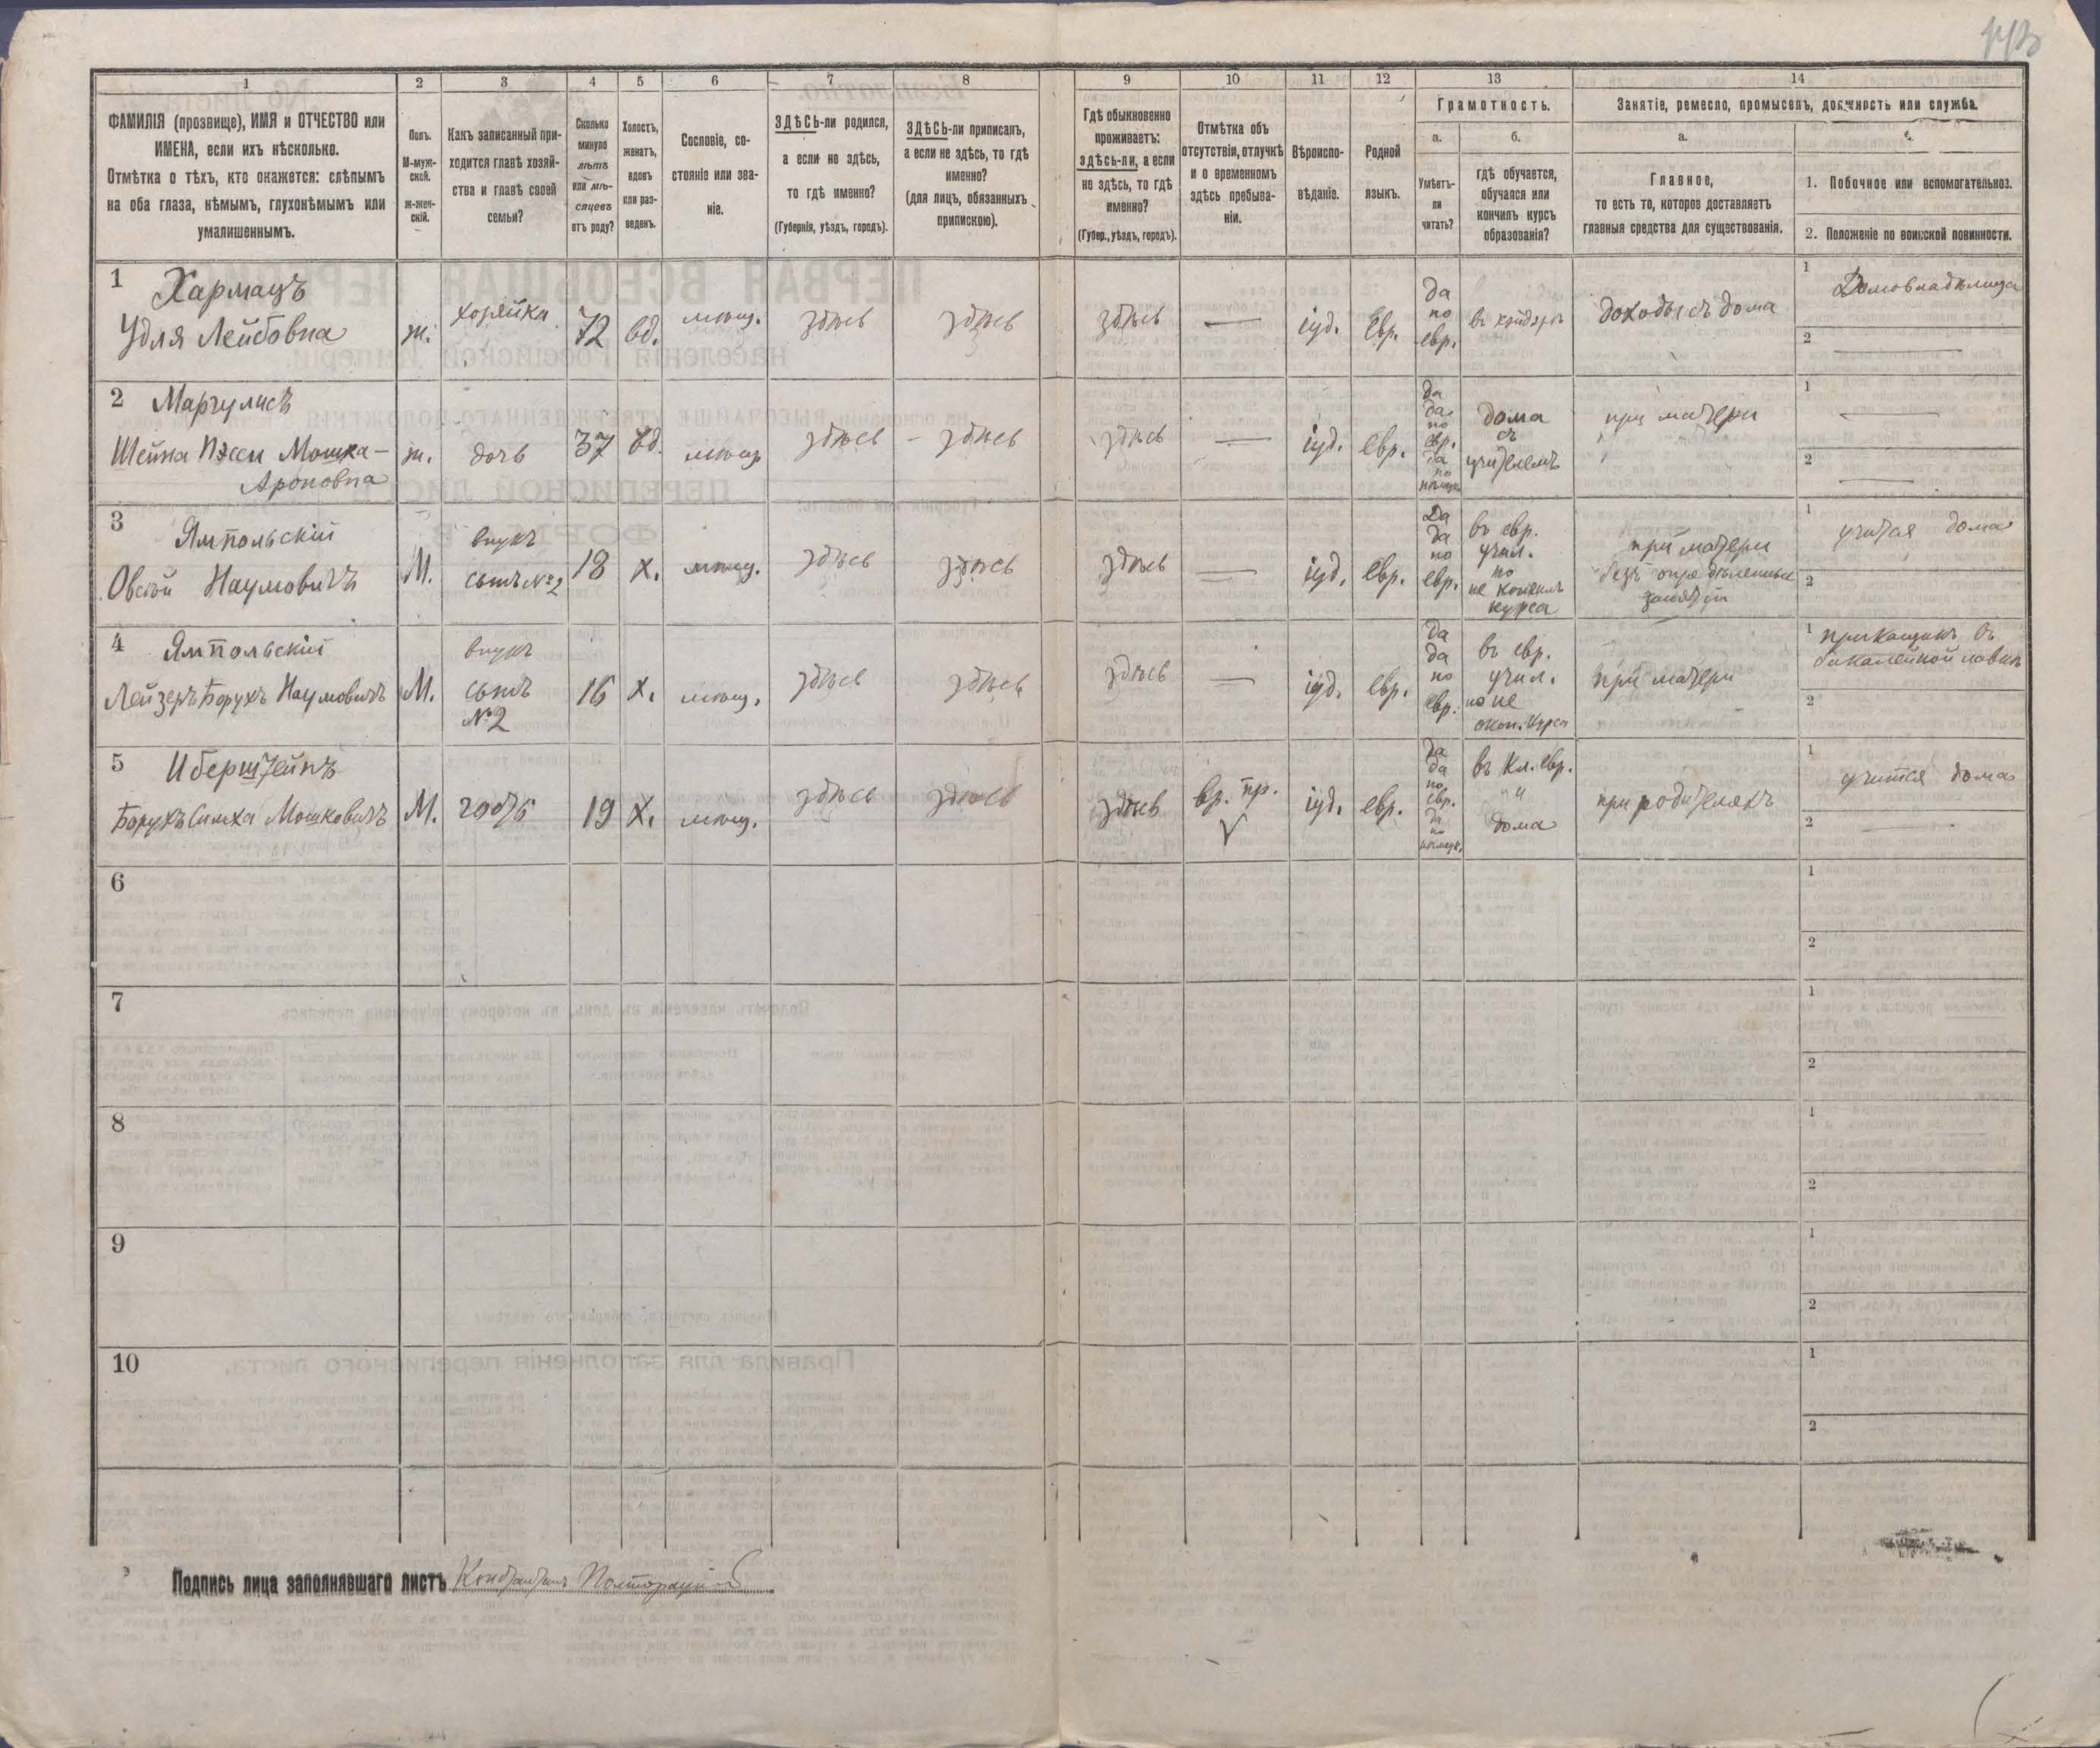 1 2 3 4 5 6 7 8 9 10 11 12 13 14
ФАМИЛІЯ (прозвище), ИМЯ и ОТЧЕСТВО или
ИМЕНА, если ихъ нѣсколько.
Отмѣтка о тѣхъ, кто окажется: слѣпымъ
на оба глаза, нѣмымъ, глухонѣмымъ или
умалишеннымъ.
Полъ.
М-муж-
ской.
Ж-жен-
скій.
Какъ записанный при-
ходится главѣ хозяй-
ства и главѣ своей
семьи?
Сколько
минуло
лѣтъ
или мѣ-
сяцевъ
отъ роду?
Холостъ,
женатъ,
вдовъ
или раз-
веденъ.
Сословіе, со-
стояніе или зва-
ніе.
ЗДѢСЬ-ли родился,
а если не здѣсь,
то гдѣ именно?
(Губернія, уѣздъ, городъ).
ЗДѢСЬ-ли приписанъ,
а если не здѣсь, то гдѣ
именно?
(для лицъ, обязанныхъ
припискою).
Гдѣ обыкновенно
проживаетъ:
здѣсь-ли, а если
не здѣсь, то гдѣ
именно?
(Губер., уѣздъ, городъ).
Отмѣтка объ
отсутствіи, отлучкѣ
и о временномъ
здѣсь пребыва-
ніи.
Вѣроиспо-
вѣданіе.
Родной
языкъ.
Грамотность.
а.
Умѣетъ-
ли
читать?
б.
гдѣ обучается,
обучался или
кончилъ курсъ
образованія?
Занятіе, ремесло, промыселъ, должность или служба.
а.
Главное,
то есть то, которое доставляетъ
главныя средства для существованія.
1. Побочное или вспомогательное.
2. Положеніе по воинской повинности.
1 Хармацъ
Удля Лейбовна
ж.
хозяйка
72
вд.
мѣщ.
здѣсь
здѣсь
здѣсь
—
іуд.
Евр.
да
по
евр.
въ хейдерѣ
доходы съ дома
1 Домовладѣлица
2 —
2 Маргулисъ
Шейна Пэсси Мошка-
Ароновна
ж.
дочь
37
вд.
мѣщ
здѣсь
здѣсь
здѣсь
—
іуд.
евр.
да
да
по
евр.
да
по
нѣмецк.
дома
съ
учителемъ
при матери
1 —
2 —
3
Ямпольскій
Овсѣй Наумовичъ
М.
внукъ
сынъ №2
18
х.
мѣщ.
здѣсь
здѣсь
здѣсь
—
іуд.
евр.
Да
да
по
евр.
въ евр.
учил.
но
не кончилъ
курса
при матери
безъ опредѣленныхъ
занятій
1 учится дома
2
4 Ямпольскій
Лейзеръ Борухъ Наумовичъ
М.
внукъ
сынъ
№2
16
х.
мѣщ.
здѣсь
здѣсь
здѣсь
—
іуд.
евр.
да
да
по
евр.
въ евр.
учил.
но не
окон. курса
при матери
1 прикащикъ въ
бакалейной лавкѣ
2
5 Иберштейнъ
Борухъ Симха Мошковичъ
М.
гость
19
х.
мѣщ.
здѣсь
здѣсь
здѣсь
вр. пр.
V
іуд.
евр.
да
да
по
евр.
да
по
нѣмецк.
въ кл. евр.
" "
дома
при родителяхъ
1 учится дома
2 —
6
1
2
7
1
2
8
1
2
9
1
2
10
1
2
Подпись лица заполнявшаго листъ Константинъ Полторацкій